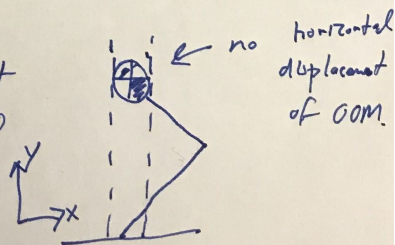 no horizontal
displacement
of COM.
y
x